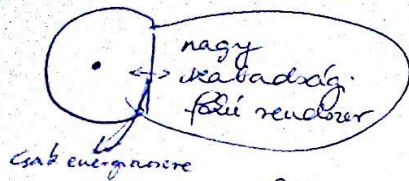 nagy
szabadsági
fokú rendszer
csak energiacsere